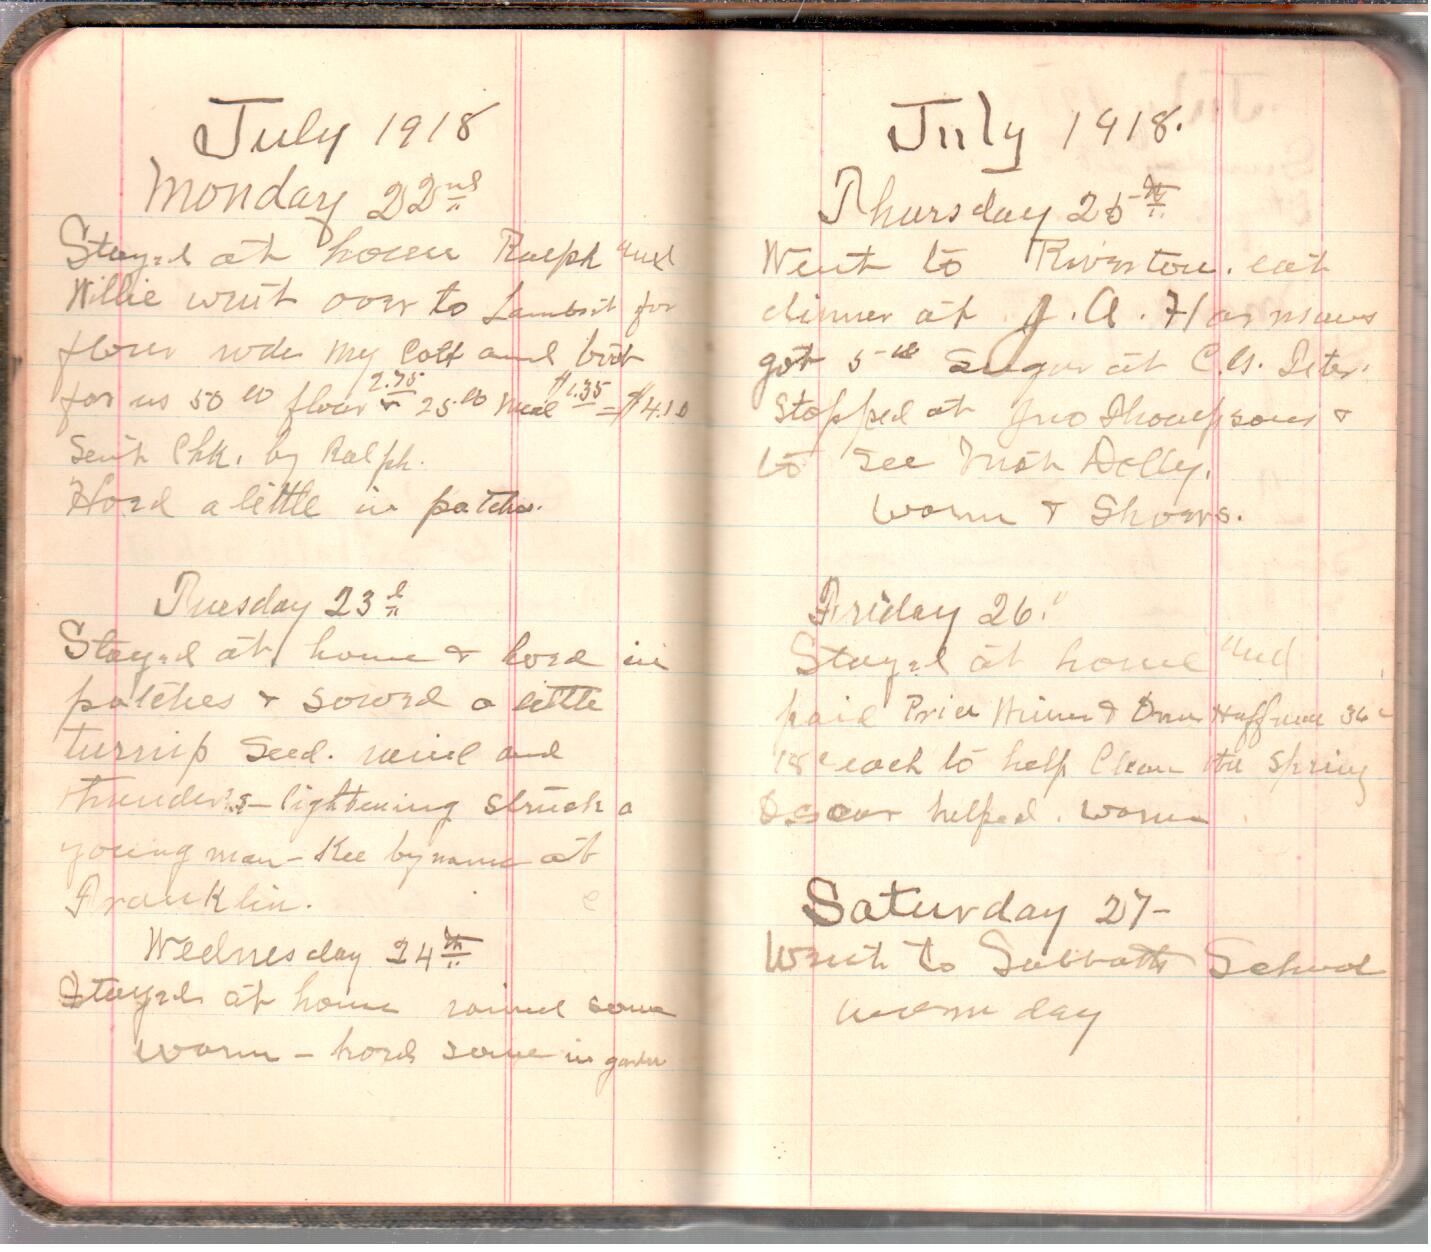 July 1918
Monday 22nd
Stayed at home Ralph and
Willie went over to Lambert for
flour rode my Colt and brot
for us 50 lb flour 2.75 & 25 lb meal $1.35 = $4.10
Sent Chk. by Ralph.
Hoed a little in patches.
Tuesday 23d
Stayed at home & hoed in
patches & sowed a little
turnip seed. rained and
thunders - lightening struck a
young man - Kee by name at
Franklin.
Wednesday 24th
Stayed at home rained some
worm - hoed some in garden
July 1918.
Thursday 25th
Went to Riverton. eat
dinner at J. A.
got 5 lb Sugar at C. A.
Stopped at Jno Thompsons &
to see Dolly.
worm & Showrs.
Friday 26"
Stayed at home and
paid Price & Huffman 36c
18c each to help Clean the Spring
Oscar helped. worm
Saturday 27-
Went to Sabbath School
worm day